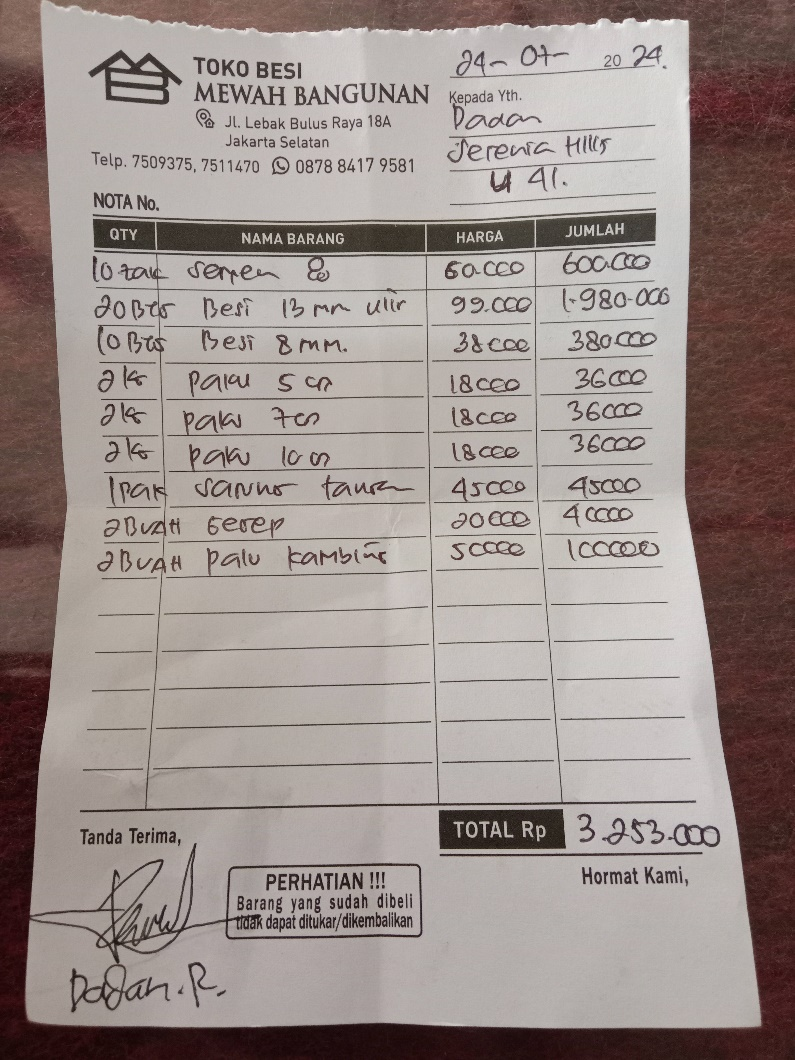 TOKO BESI
MEWAH BANGUNAN
Jl. Lebak Bulus Raya 18A
Jakarta Selatan
Telp. 7509375, 7511470 0878 8417 9581
24-07- 2024.
Kepada Yth.
Dadan
Serenia Hills
U 41.
NOTA No.
QTY NAMA BARANG HARGA JUMLAH
10 zak semen 60.000 600.000
20 Btg Besi 13 mm ulir 99.000 1.980.000
10 Btg Besi 8 mm. 38000 380000
2 kg paku 5 cm 18000 36000
2 kg paku 7 cm 18000 36000
2 kg paku 10 cm 18000 36000
1 pak sarung tangan 45000 45000
2 BUAH 20000 40000
2 BUAH palu kambing 50000 100000
TOTAL Rp 3.253.000
Tanda Terima,
Hormat Kami,
PERHATIAN !!!
Barang yang sudah dibeli
tidak dapat ditukar/dikembalikan
Dadan.R.